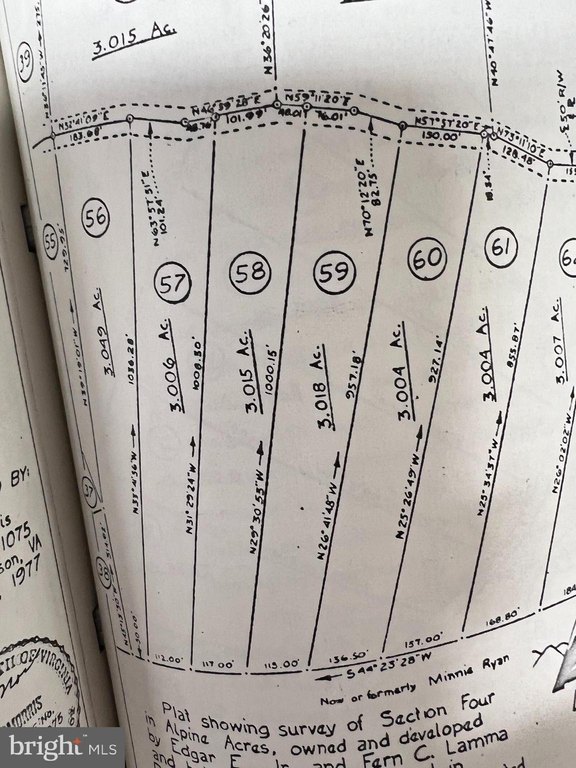 3.015 Ac.
N36°20'26"
N40°47'46"W
275.
N32°41'09"E
183.68'
N46°39'28"E
48.76
101.99
N59°11'20"E
48.01
76.01
N57°57'20"E
190.00'
N73°11'10"E
128.48'
E 50' R/W
N63°57'51"E
101.24'
N70°12'20"E
82.75'
55
56
57
58
59
60
61
729.95'
3.049 Ac.
1036.28'
3.006 Ac.
1008.30'
3.015 Ac.
1000.15'
3.018 Ac.
957.18'
3.004 Ac.
927.14'
3.004 Ac.
853.87'
3.007 Ac.
N39°19'01"W
N33°41'36"W
N31°29'24"W
N29°30'53"W
N26°41'48"W
N25°26'49"W
N23°34'37"W
N26°02'02"W
112.00'
117.00'
119.00'
136.50'
157.00'
168.80'
184
S44°23'28"W
Now or formerly Minnie Ryan
BY:
is
1075
son, VA
1977
OF VIRGINIA
MORRIS
Plat showing survey of Section Four
in Alpine Acres, owned and developed
by Edgar E. Jr. and Fern C. Lamma
and
bright MLS